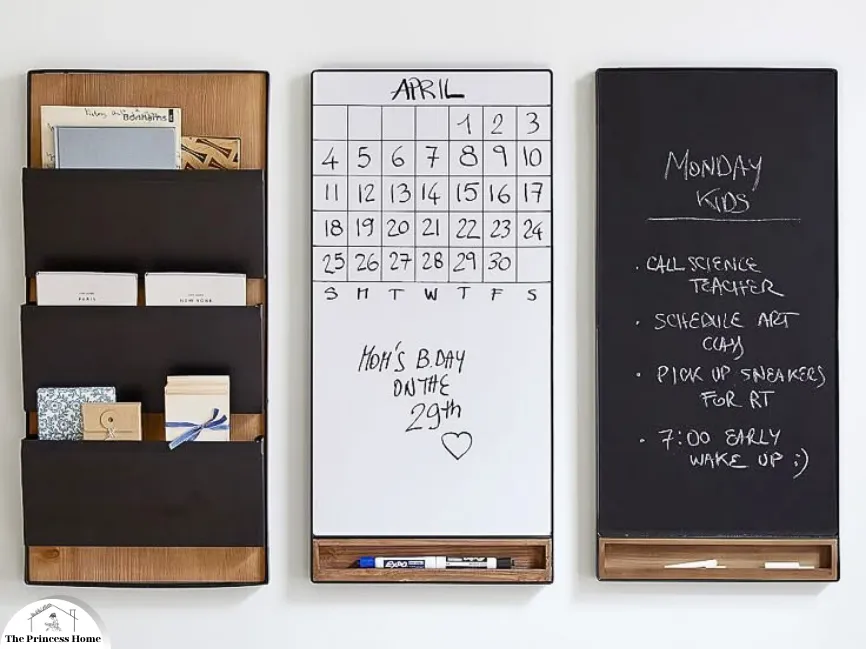 Bonhams
PARIS
NEW YORK
APRIL
1 2 3
4 5 6 7 8 9 10
11 12 13 14 15 16 17
18 19 20 21 22 23 24
25 26 27 28 29 30
S M T W T F S
MOM'S B.DAY
ON THE
29th
EXPO
MONDAY
KIDS
· CALL SCIENCE
TEACHER
· SCHEDULE ART
CLAY
· PICK UP SNEAKERS
FOR RT
· 7:00 EARLY
WAKE UP ;)
The Princess Home